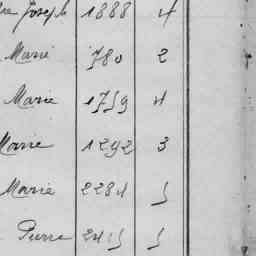 Joseph 1888 4
Marie 780 2
Marie 1759 4
Marie 1292 3
Marie 2284 5
Pierre 2415 5